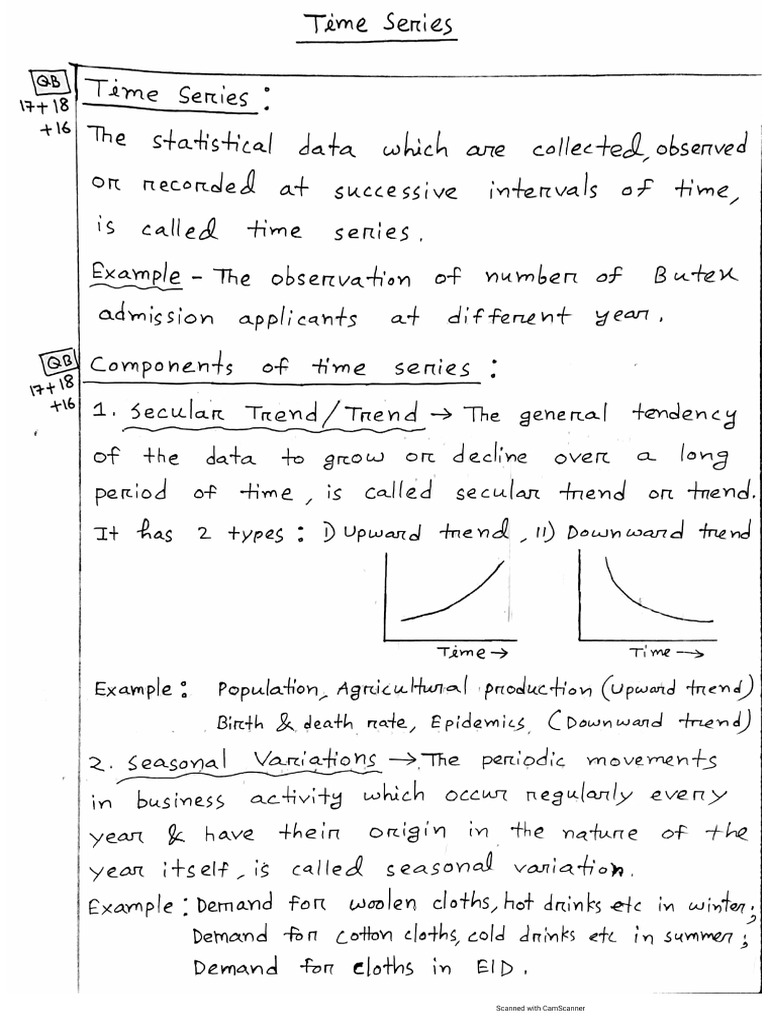 Time Series
QB
17+18
+16
Time Series:
The statistical data which are collected, observed
or recorded at successive intervals of time,
is called time series.
Example - The observation of number of Butex
admission applicants at different year.
QB
17+18
+16
Components of time series:
1. Secular Trend/Trend → The general tendency
of the data to grow or decline over a long
period of time, is called secular trend or trend.
It has 2 types: I) Upward trend, II) Downward trend
Time →
Time →
Example: Population, Agricultural production (Upward trend)
Birth & death rate, Epidemics, (Downward trend)
2. Seasonal Variations → The periodic movements
in business activity which occur regularly every
year & have their origin in the nature of the
year itself, is called seasonal variation.
Example: Demand for woolen cloths, hot drinks etc in winter;
Demand for cotton cloths, cold drinks etc in summer;
Demand for cloths in EID.
Scanned with CamScanner